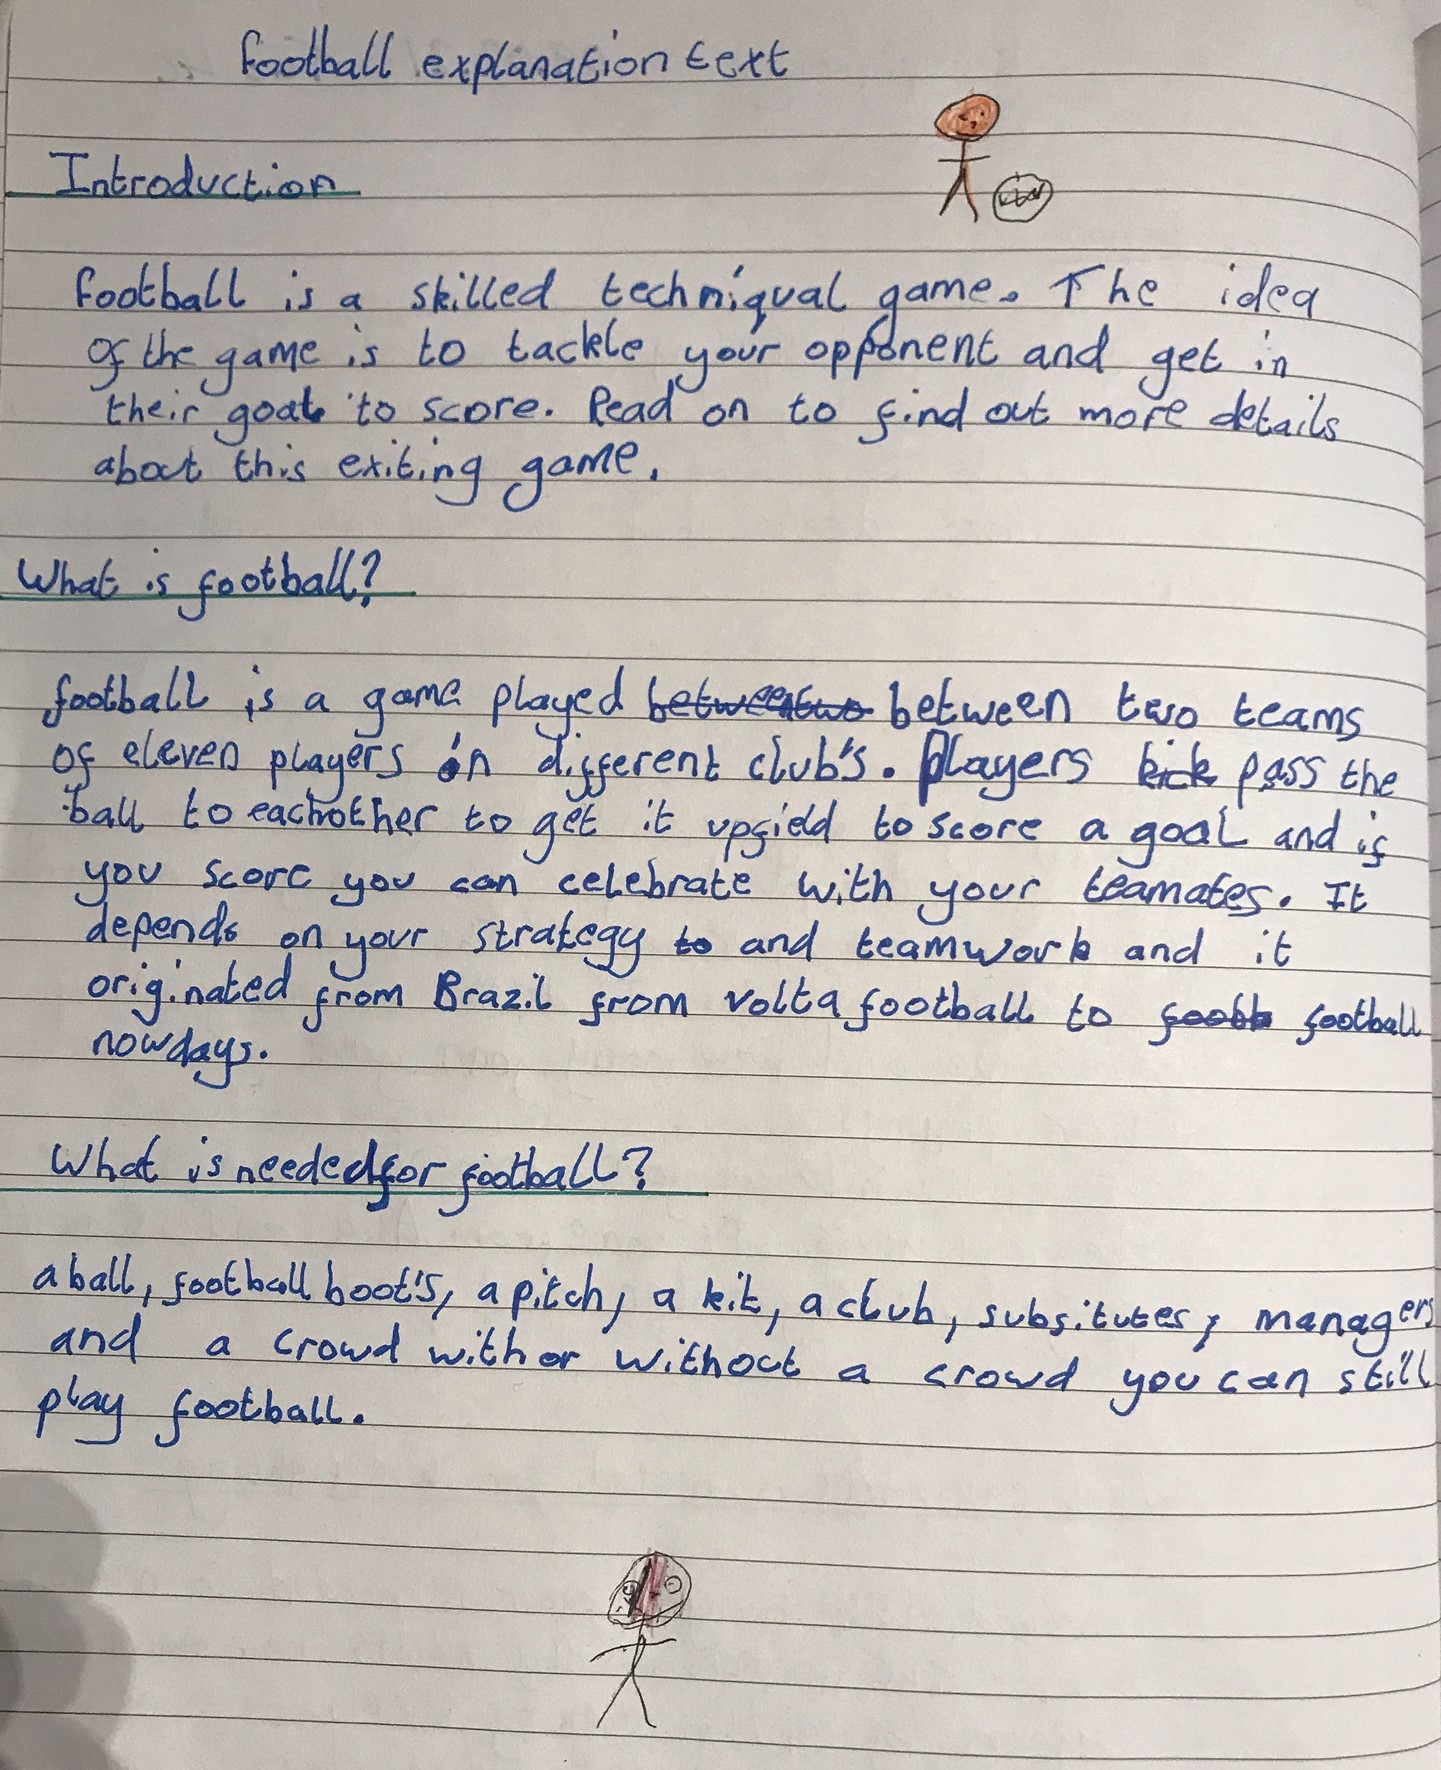 football explanation text
Introduction
football is a skilled techniqual game. The idea
of the game is to tackle your opponent and get in
their goal to score. Read on to find out more details
about this exiting game.
What is football?
football is a game played betweentwo between two teams
of eleven players in different club's. Players kick pass the
ball to eachother to get it upfield to score a goal and if
you score you can celebrate with your teamates. It
depends on your strategy to and teamwork and it
originated from Brazil from volta football to footb football
nowdays.
What is needed for football?
a ball, football boot's, a pitch, a kit, a club, subsitutes, managers
and a crowd with or without a crowd you can still
play football.